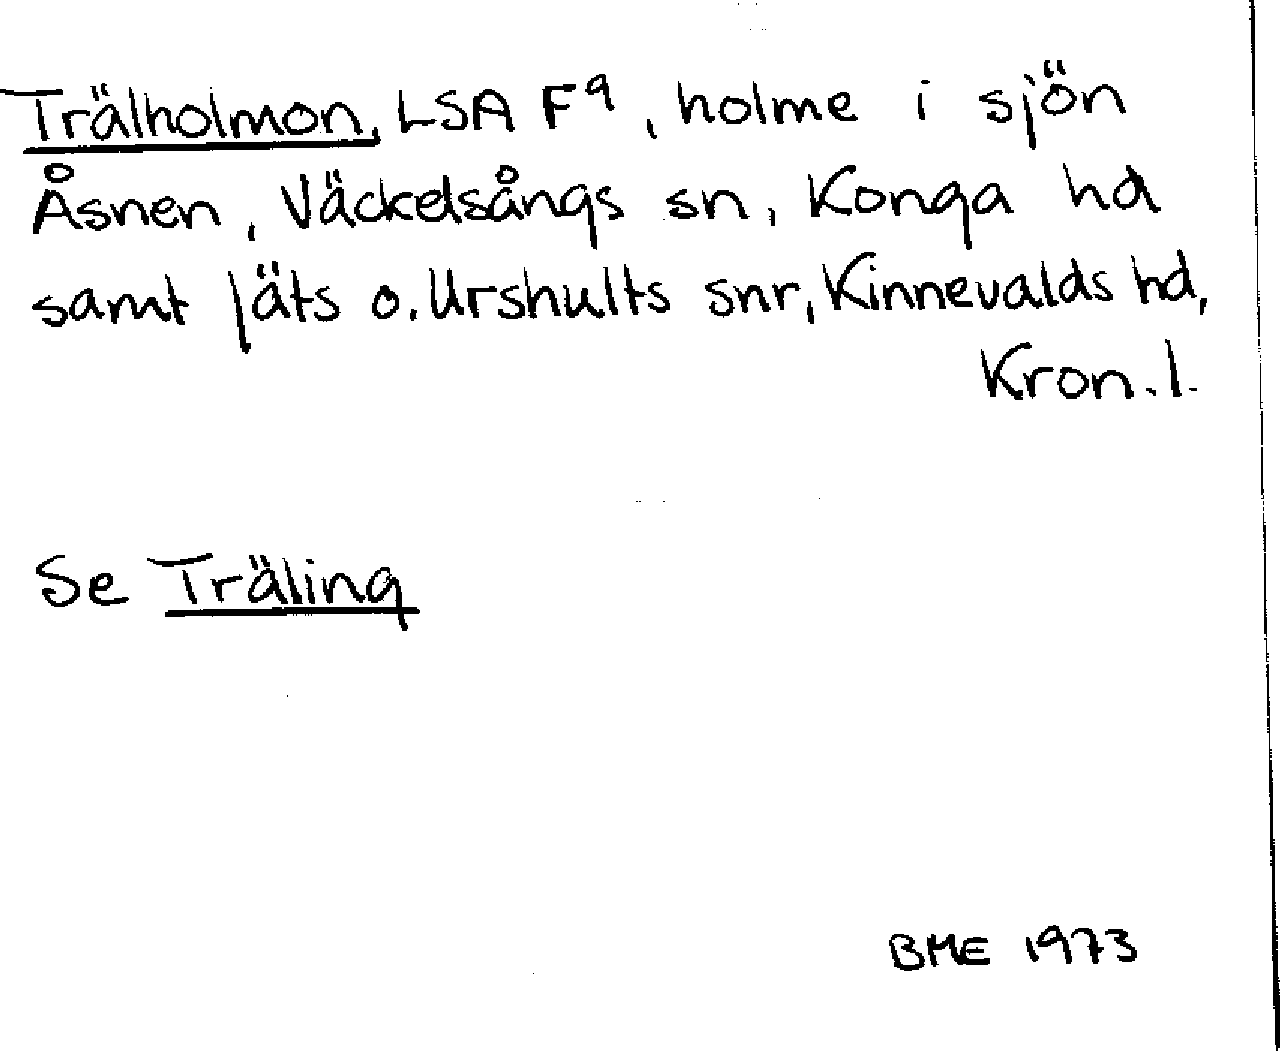 Trälholmon, LSA F⁹, holme i sjön
Åsnen, Väckelsångs sn, Konga hd
samt Jäts o. Urshults snr, Kinnevalds hd,
Kron. l.
Se Träling
BME 1973